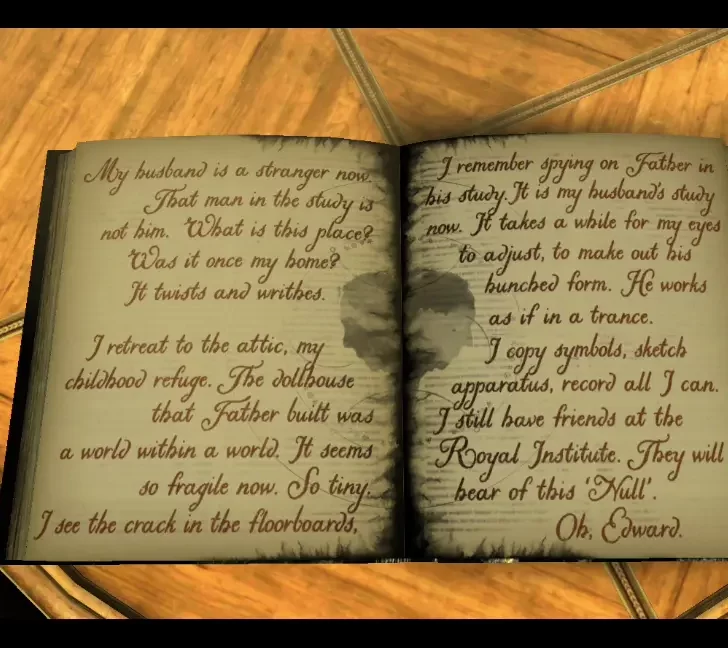 My husband is a stranger now.
That man in the study is
not him. What is this place?
Was it once my home?
It twists and writhes.
I retreat to the attic, my
childhood refuge. The dollhouse
that Father built was
a world within a world. It seems
so fragile now. So tiny.
I see the crack in the floorboards,
I remember spying on Father in
his study. It is my husband's study
now. It takes a while for my eyes
to adjust, to make out his
hunched form. He works
as if in a trance.
I copy symbols, sketch
apparatus, record all I can.
I still have friends at the
Royal Institute. They will
hear of this 'Null'.
Oh, Edward.